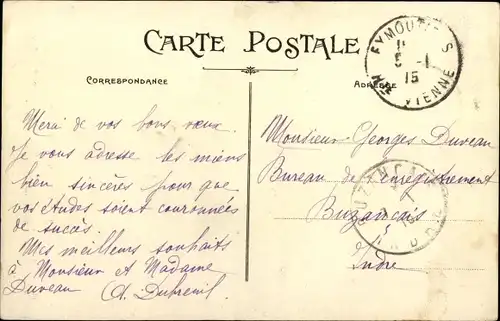 CARTE POSTALE
CORRESPONDANCE
ADRESSE
EYMOUTIERS
5 -1
15
HTE VIENNE
Merci de vos bons vœux.
Je vous adresse les miens
bien sincères pour que
vos études soient couronnées
de succès.
Mes meilleurs souhaits
à Monsieur et Madame
Duveau A. Dubreuil
Monsieur Georges Duveau
Bureau de l'enregistrement
Buzançais
Indre
BUZANÇAIS
INDRE